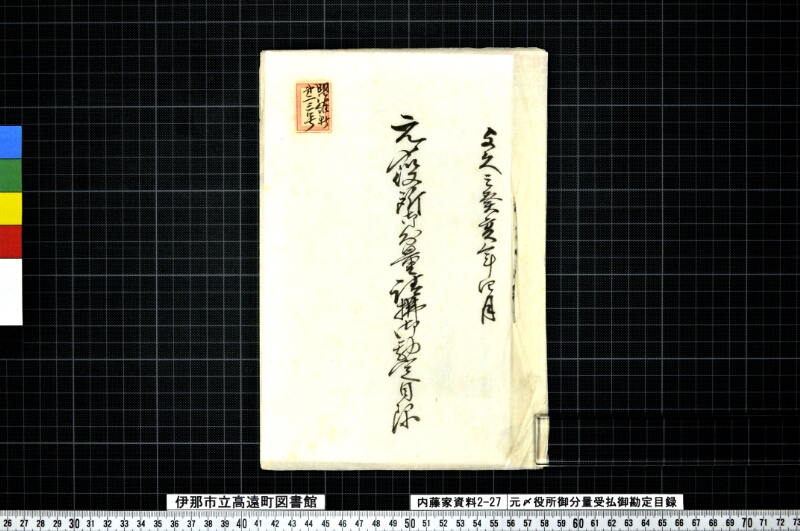 文久三癸亥年四月
元〆役所御分量請拂御勘定目録
廿三号
伊那市立高遠町図書館
内藤家資料2-27
元〆役所御分量受払御勘定目録
26 27 28 29 30 31 32 33 34 35 36 37 38 39 40 41 42 43 44 45 46 47 48 49 50 51 52 53 54 55 56 57 58 59 60 61 62 63 64 65 66 67 68 69 70 71 72 73